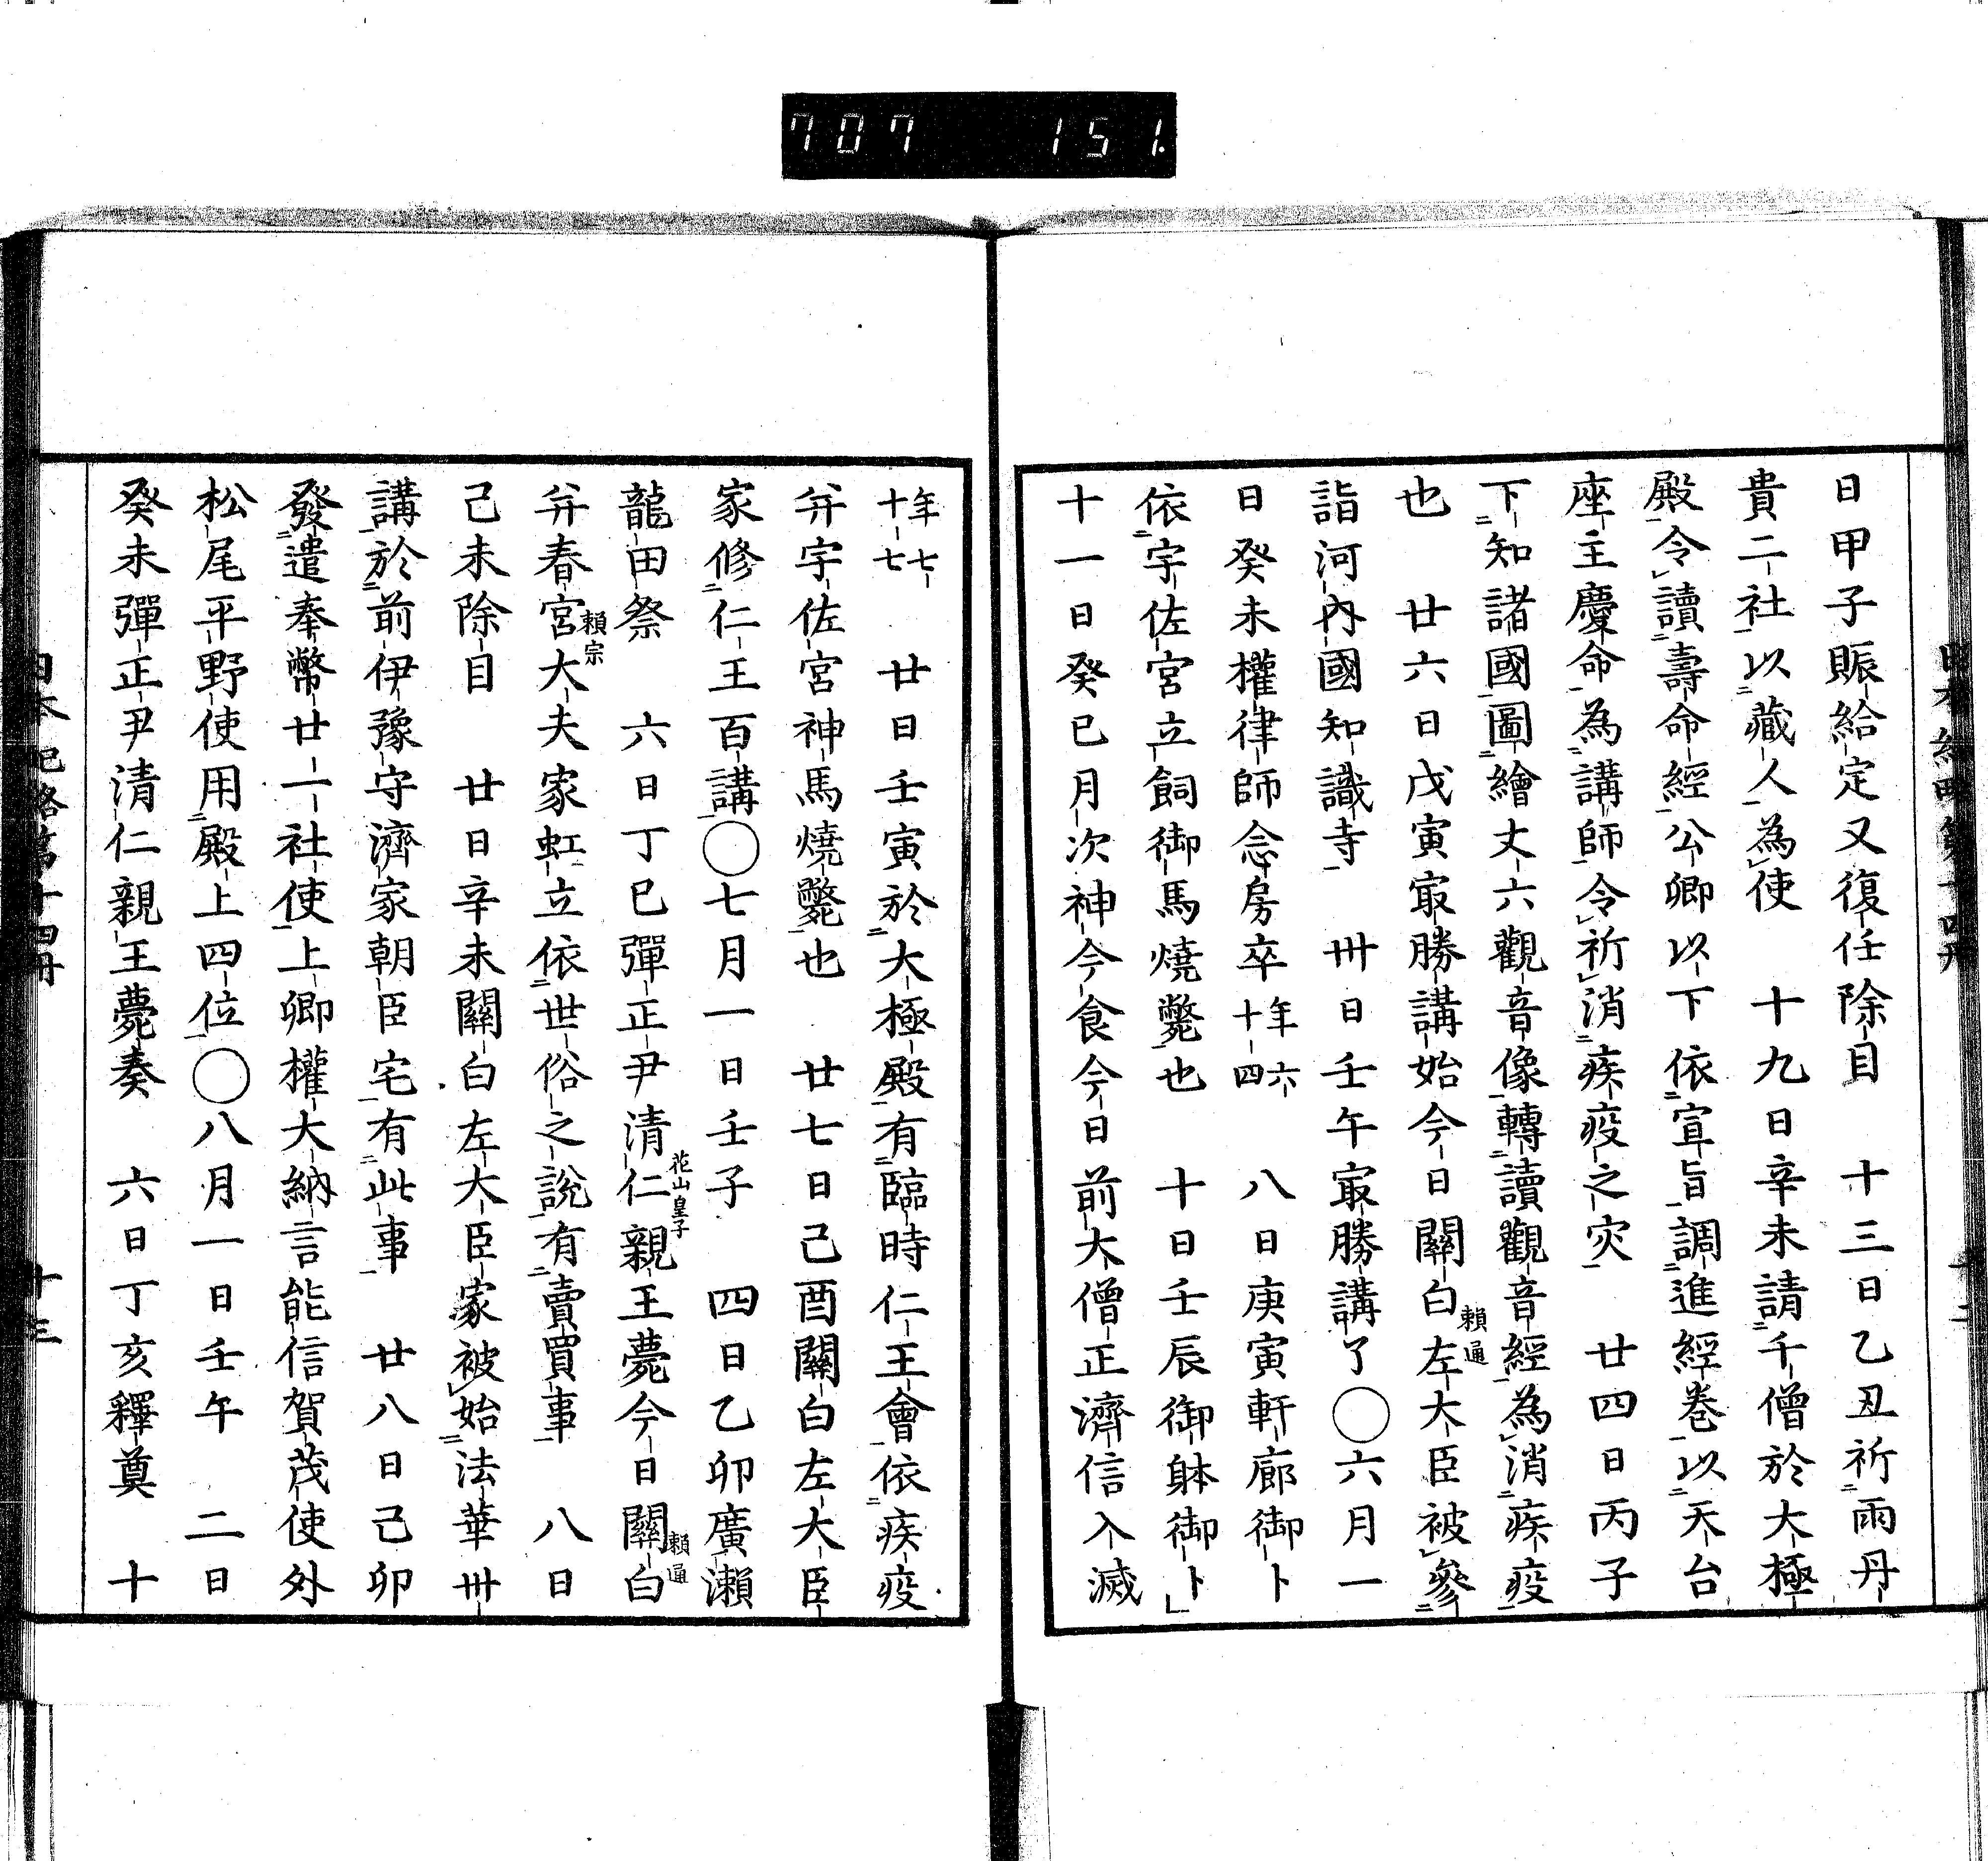 707 151.
日甲子賑給定又復任除目　十三日乙丑祈雨丹
貴二社以藏人為使　十九日辛未請千僧於大極
殿令讀壽命經公卿以下依宣旨調進經巻以天台
座主慶命為講師令祈消疾疫之灾　廿四日丙子
下知諸國圖繪丈六觀音像轉讀觀音經為消疾疫
也　廿六日戊寅㝡勝講始今日關白頼通左大臣被參
詣河內國知識寺　卅日壬午㝡勝講了〇六月一
日癸未權律師念房卒年六十四　八日庚寅軒廊御卜
依宇佐宮立飼御馬燒斃也　十日壬辰御躰御卜
十一日癸巳月次神今食今日前大僧正濟信入滅
年七十七　廿日壬寅於大極殿有臨時仁王會依疾疫
并宇佐宮神馬燒斃也　廿七日己酉關白左大臣
家修仁王百講〇七月一日壬子　四日乙卯廣瀨
龍田祭　六日丁巳彈正尹清仁親王花山皇子薨今日關白頼通
并春宮大夫頼宗家虹立依世俗之說有賣買事　八日
己未除目　廿日辛未關白左大臣家被始法華卅
講於前伊豫守濟家朝臣宅有此事　廿八日己卯
發遣奉幣廿一社使上卿權大納言能信賀茂使外
松尾平野使用殿上四位〇八月一日壬午　二日
癸未彈正尹清仁親王薨奏　六日丁亥釋奠　十
日本紀略第十四冊　十三